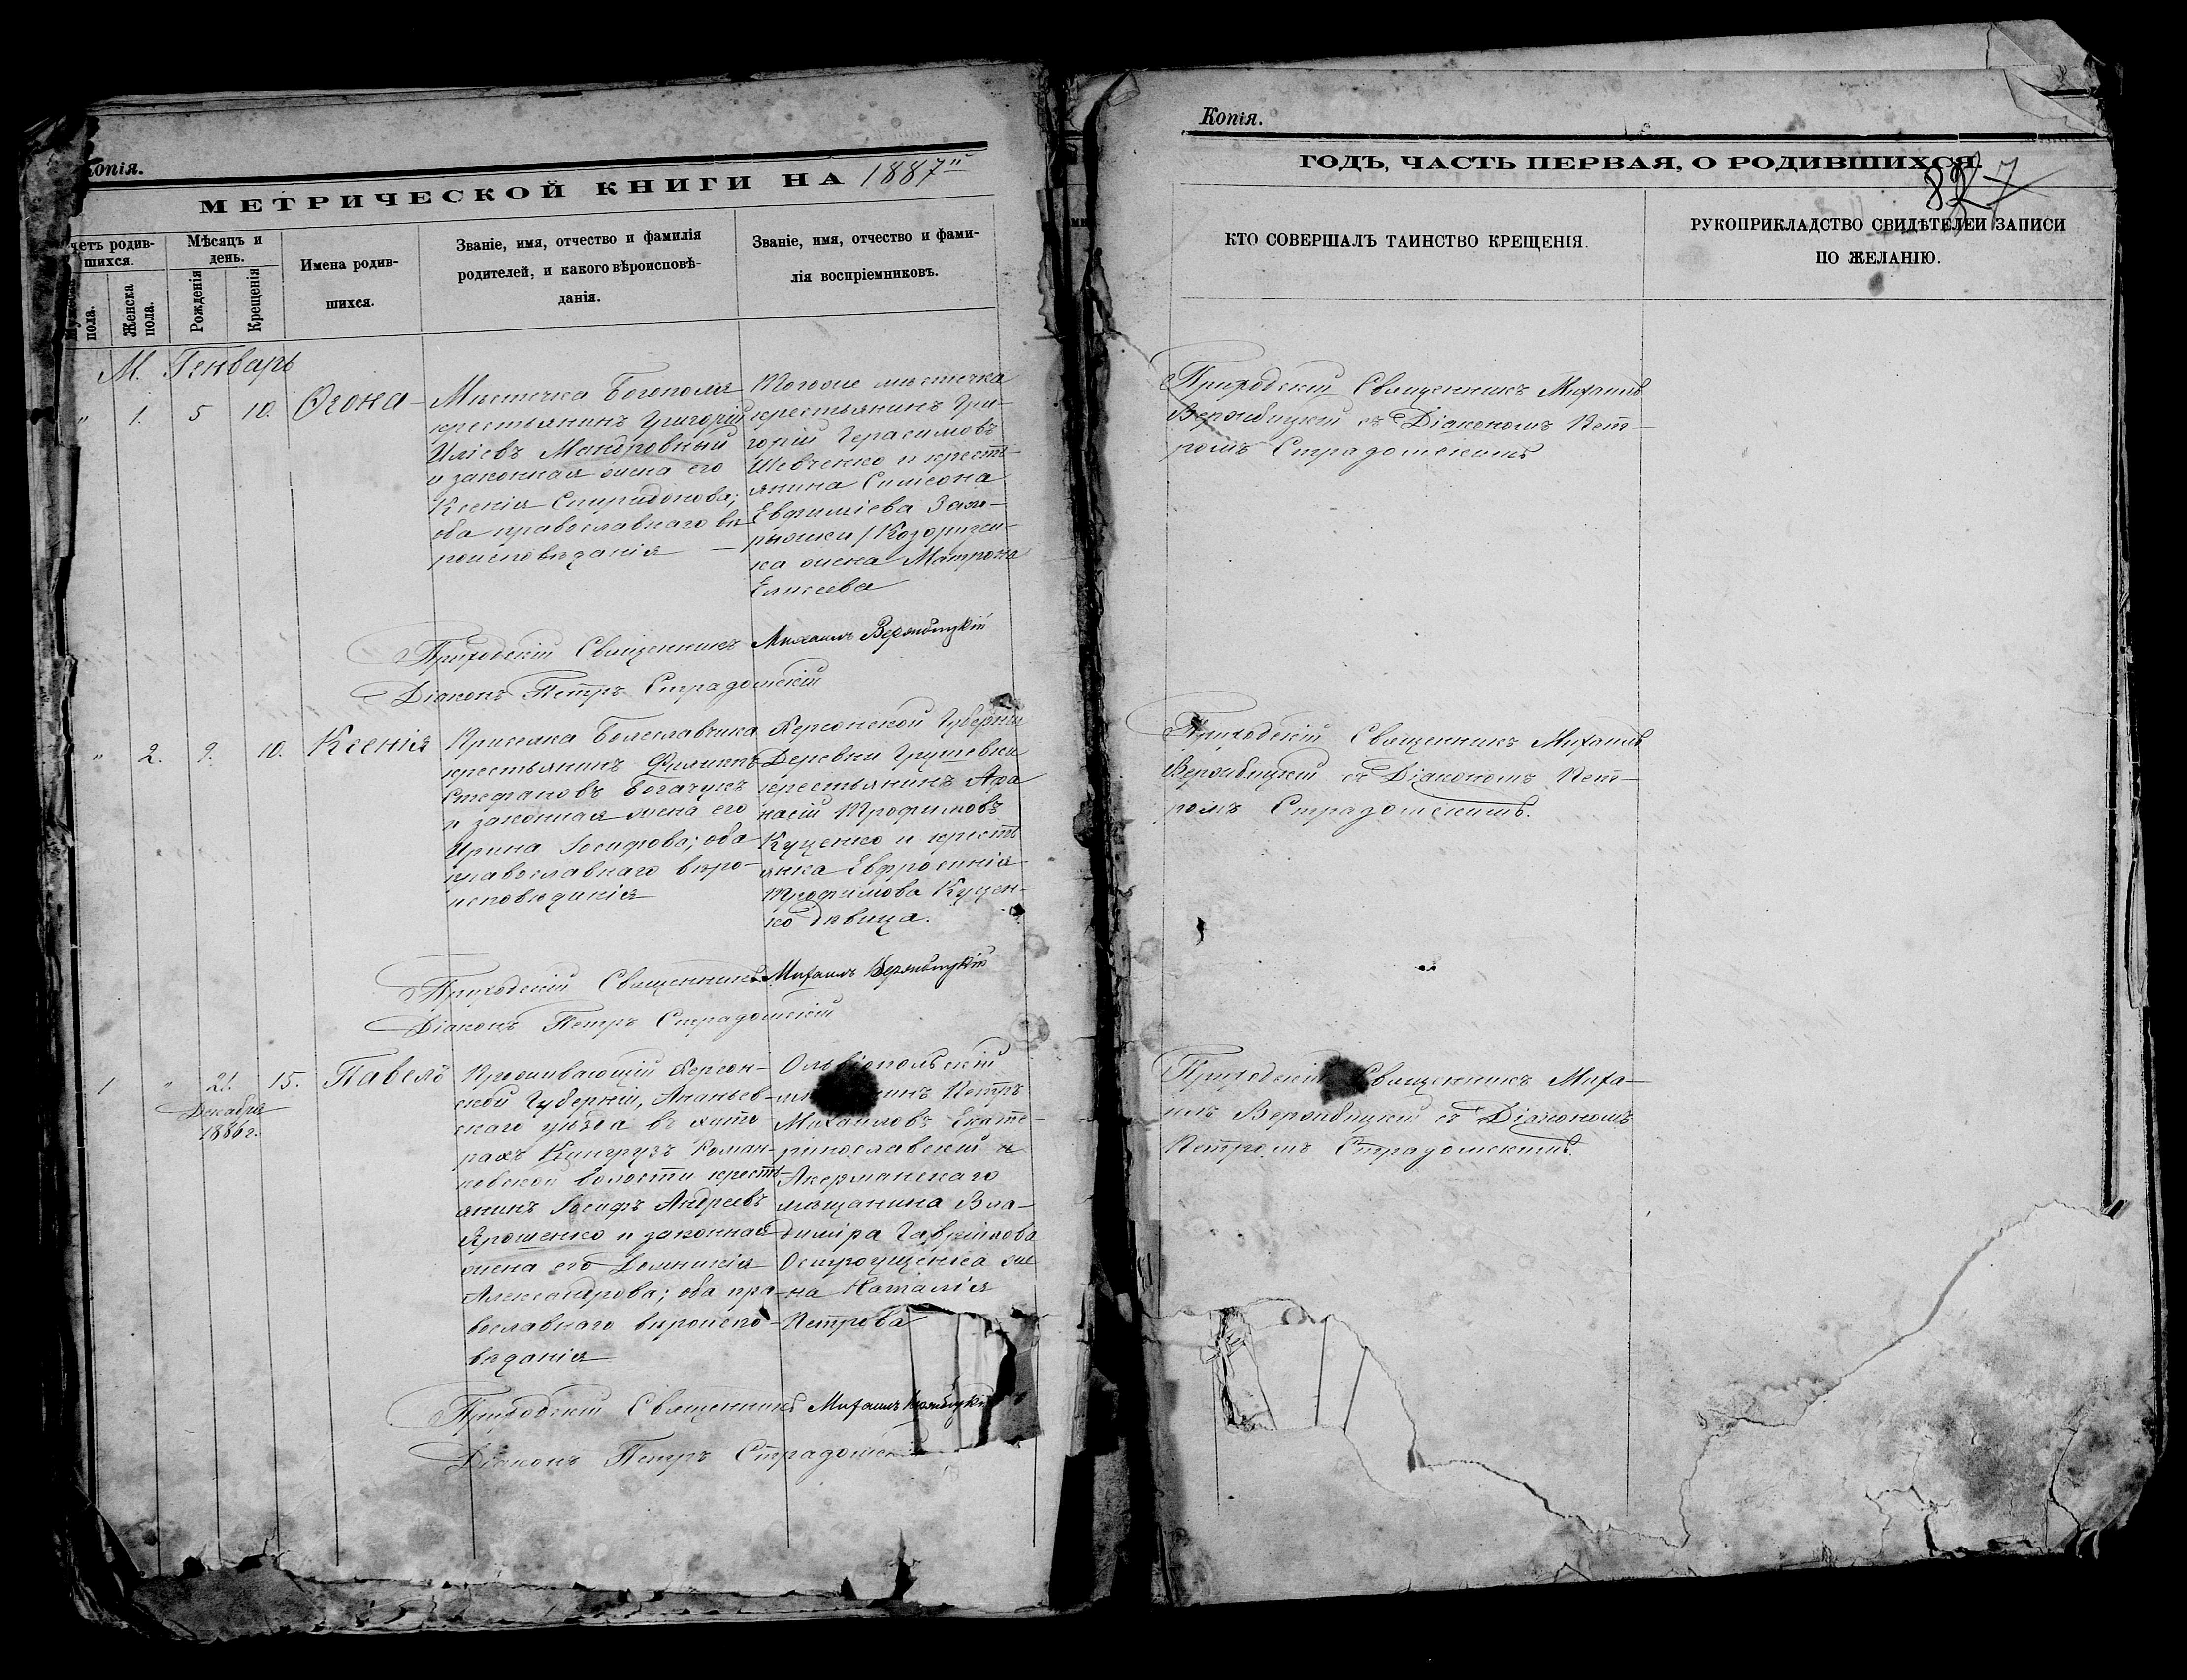 Копія.
МЕТРИЧЕСКОЙ КНИГИ НА 1887й
четъ родив-
шихся.
пола.
Женска
пола.
Мѣсяцъ и
день.
Рожденія
Крещенія
Имена родив-
шихся.
Званіе, имя, отчество и фамилія
родителей, и какого вѣроисповѣ-
данія.
Званіе, имя, отчество и фами-
лія воспріемниковъ.
М. Генварь
" 1. 5 10.
Мѣстечка Богополя
крестьянинъ Григорій
Иліевъ
и законная жена его
Ксенія Спиридонова;
оба православнаго вѣ-
роисповѣданія
Тогоже мѣстечка
крестьянинъ Гри-
горій Герасимовъ
Шевченко и кресть-
янина Симеона
Евфиміева
жена Матрона
Елисеева
Приходскій Священникъ Михаилъ Вержбицкій
Діаконъ Петръ Страдомскій
" 2. 9. 10. Ксенія
Приселка Болеславчика
крестьянинъ Филиппъ
Стефановъ Богачукъ
и законная жена его
Ирина Іосифова; оба
православнаго вѣро-
исповѣданія
Херсонской Губерніи
Деревни Грушевки
крестьянинъ Афа
насій Трофимовъ
Куценко и кресть
янка Евфросинія
Трофимова Куцен-
ко дѣвица.
Приходскій Священникъ Михаилъ Вержбицкій
Діаконъ Петръ Страдомскій
1 " 21. 15. Павелъ
Декабря
1886 г.
Проживающій Херсон-
ской Губерніи, Ананьев-
скаго уѣзда въ хуто
рахъ Роман-
ковской волости кресть-
янинъ Іосифъ Андреевъ
Ярошенко и законная
жена его Домникія
Александрова; оба пра-
вославнаго вѣроиспо-
вѣданія
Ольвіопольскій
Петръ
Михаиловъ Екате-
ринославскій и
Акерманскаго
мѣщанина Вла-
диміра Гавріилова
же
на Наталія
Петрова
Приходскій Священникъ Михаилъ Вержбицкій
Діаконъ Петръ Страдомскій
Копія.
ГОДЪ, ЧАСТЬ ПЕРВАЯ, О РОДИВШИХСЯ.
КТО СОВЕРШАЛЪ ТАИНСТВО КРЕЩЕНІЯ.
РУКОПРИКЛАДСТВО СВИДѢТЕЛЕЙ ЗАПИСИ
ПО ЖЕЛАНІЮ.
Приходскій Священникъ Михаилъ
Вержбицкій съ Діакономъ Пет-
ромъ Страдомскимъ
Приходскій Священникъ Михаилъ
Вержбицкій съ Діакономъ Пет-
ромъ Страдомскимъ.
Приходскій Священникъ Миха-
илъ Вержбицкій съ Діакономъ
Петромъ Страдомскимъ.